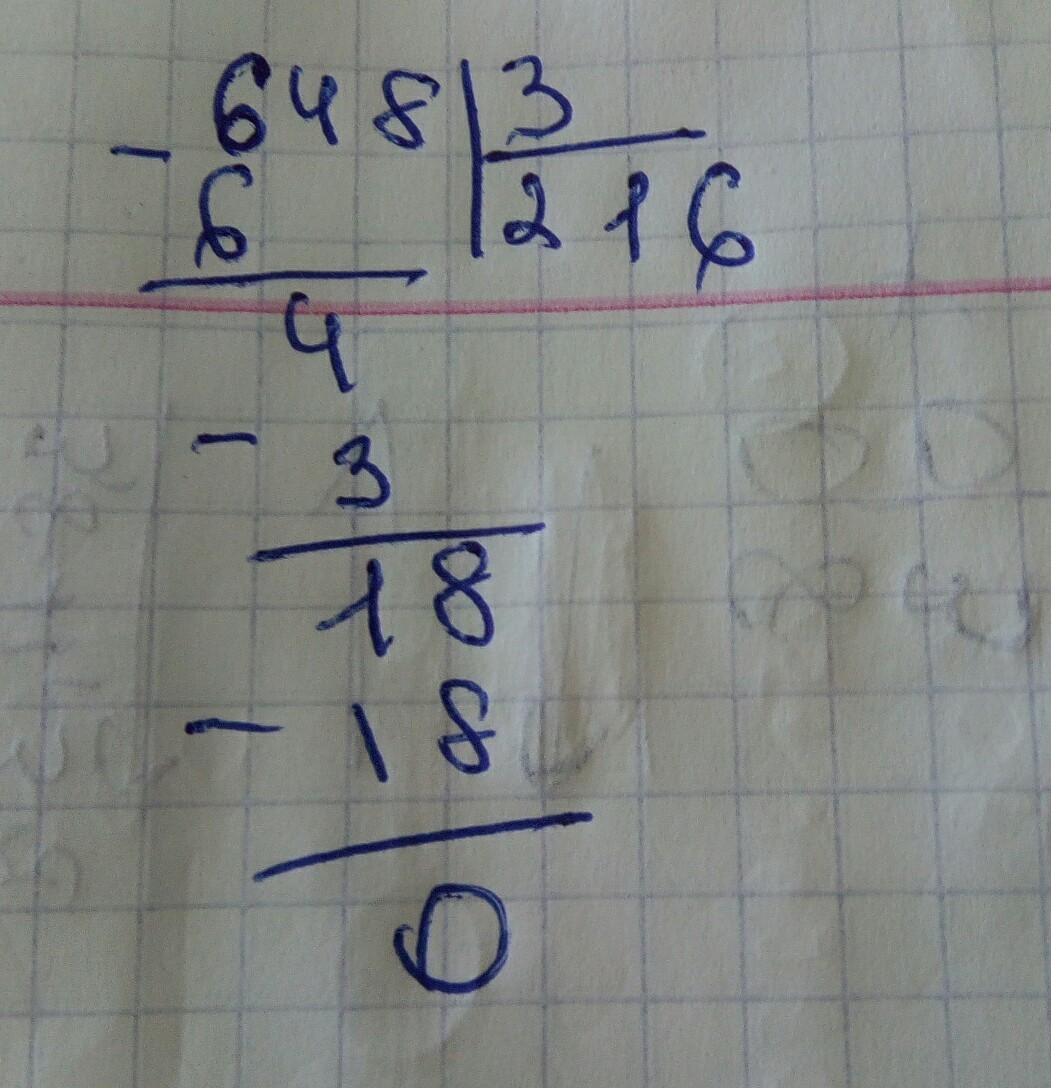 648 3
- 6 216
4
- 3
18
- 18
0